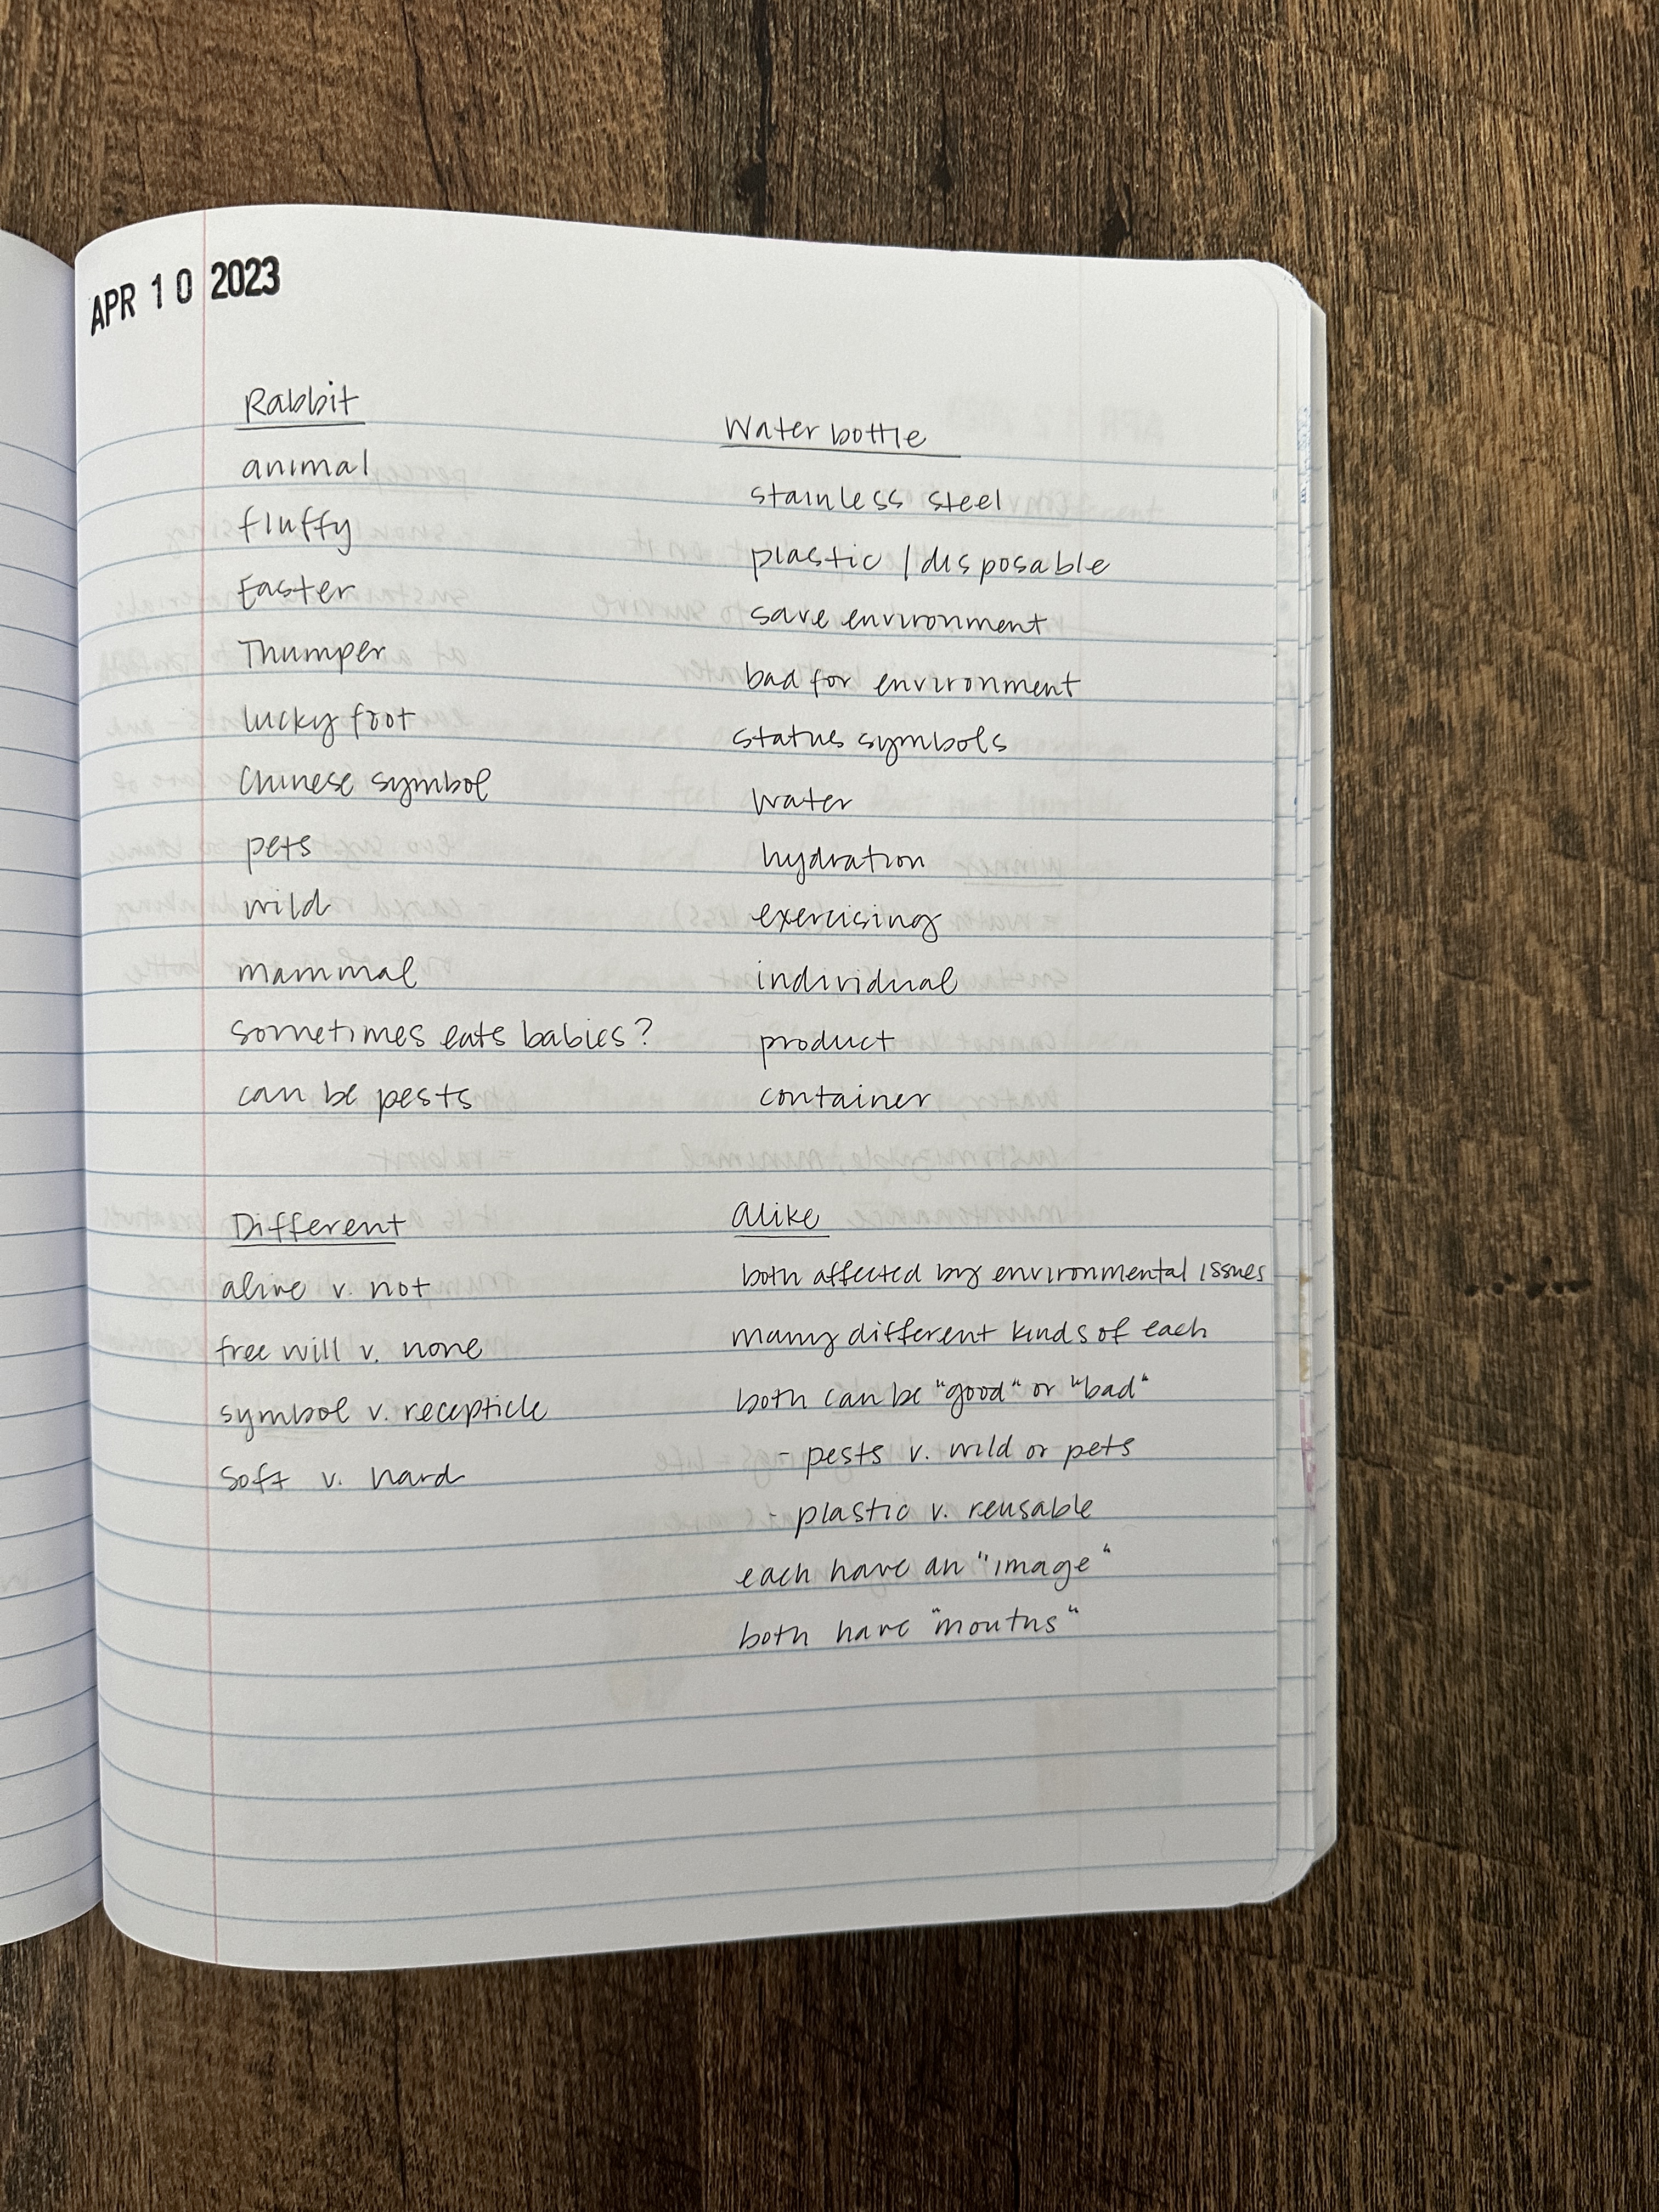 APR 10 2023
Rabbit
animal
fluffy
Easter
Thumper
lucky foot
Chinese symbol
pets
wild
mammal
sometimes eats babies?
can be pests
Water bottle
stainless steel
plastic / disposable
save environment
bad for environment
status symbols
water
hydration
exercising
individual
product
container
Different
alive v. not
free will v. none
symbol v. recepticle
soft v. hard
alike
both affected by environmental issues
many different kinds of each
both can be "good" or "bad"
- pests v. wild or pets
- plastic v. reusable
each have an "image"
both have "mouths"